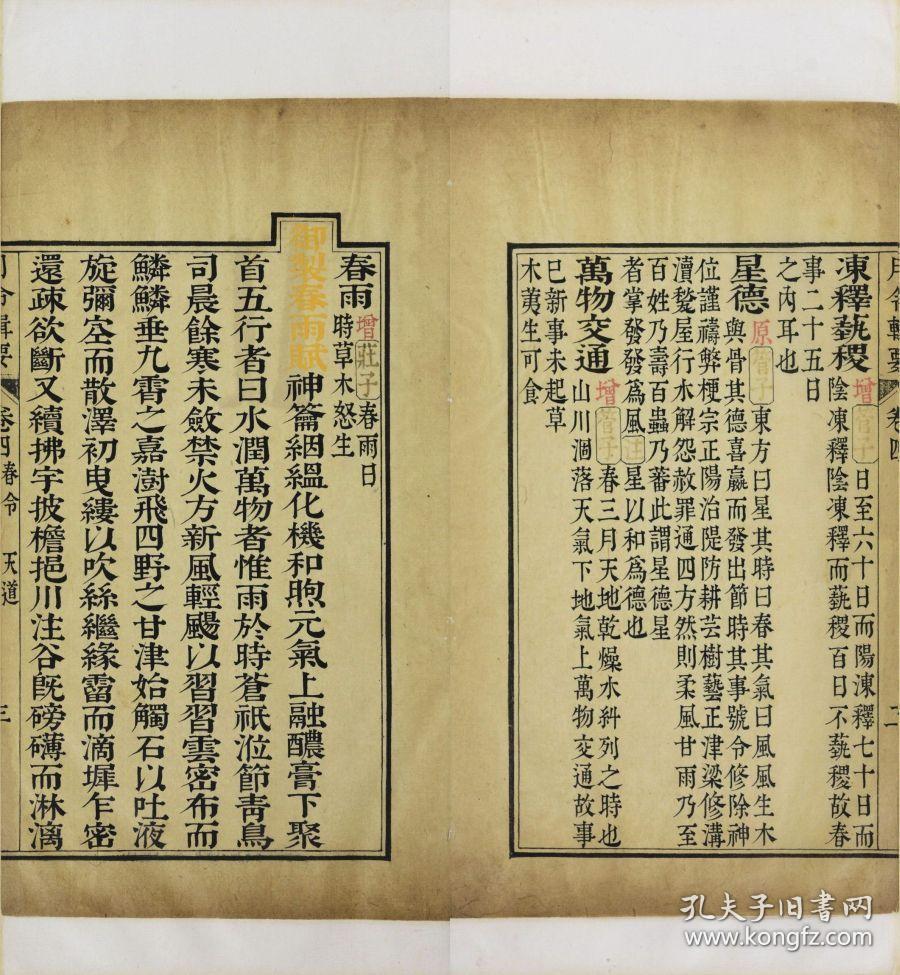 凍釋蓺稷 增 管子 日至六十日而陽凍釋七十日而
陰凍釋陰凍釋而蓺稷百日不蓺稷故春
事二十五日
之內耳也
星德 原 管子 東方曰星其時曰春其氣曰風風生木
與骨其德喜贏而發出節時其事號令修除神
位謹禱弊梗宗正陽治隄防耕芸樹藝正津梁修溝
瀆甃屋行水解怨赦罪通四方然則柔風甘雨乃至
百姓乃壽百蟲乃蕃此謂星德星
者掌發發爲風 註 星以和爲德也
萬物交通 增 管子 春三月天地乾燥水糾列之時也
山川涸落天氣下地氣上萬物交通故事
已新事未起草
木荑生可食
月令輯要
卷四
二
春雨 增 莊子 春雨日
時草木怒生
御製春雨賦 神籥絪縕化機和煦元氣上融醲膏下聚
首五行者曰水潤萬物者惟雨於時蒼祇涖節靑鳥
司晨餘寒未斂禁火方新風輕颺以習習雲密布而
鱗鱗垂九霄之嘉澍飛四野之甘津始觸石以吐液
旋彌空而散澤初曳縷以吹絲繼緣霤而滴墀乍密
還疎欲斷又續拂宇披檐挹川注谷旣磅礡而淋漓
月令輯要
卷四 春令 天道
三
孔夫子旧书网
www.kongfz.com